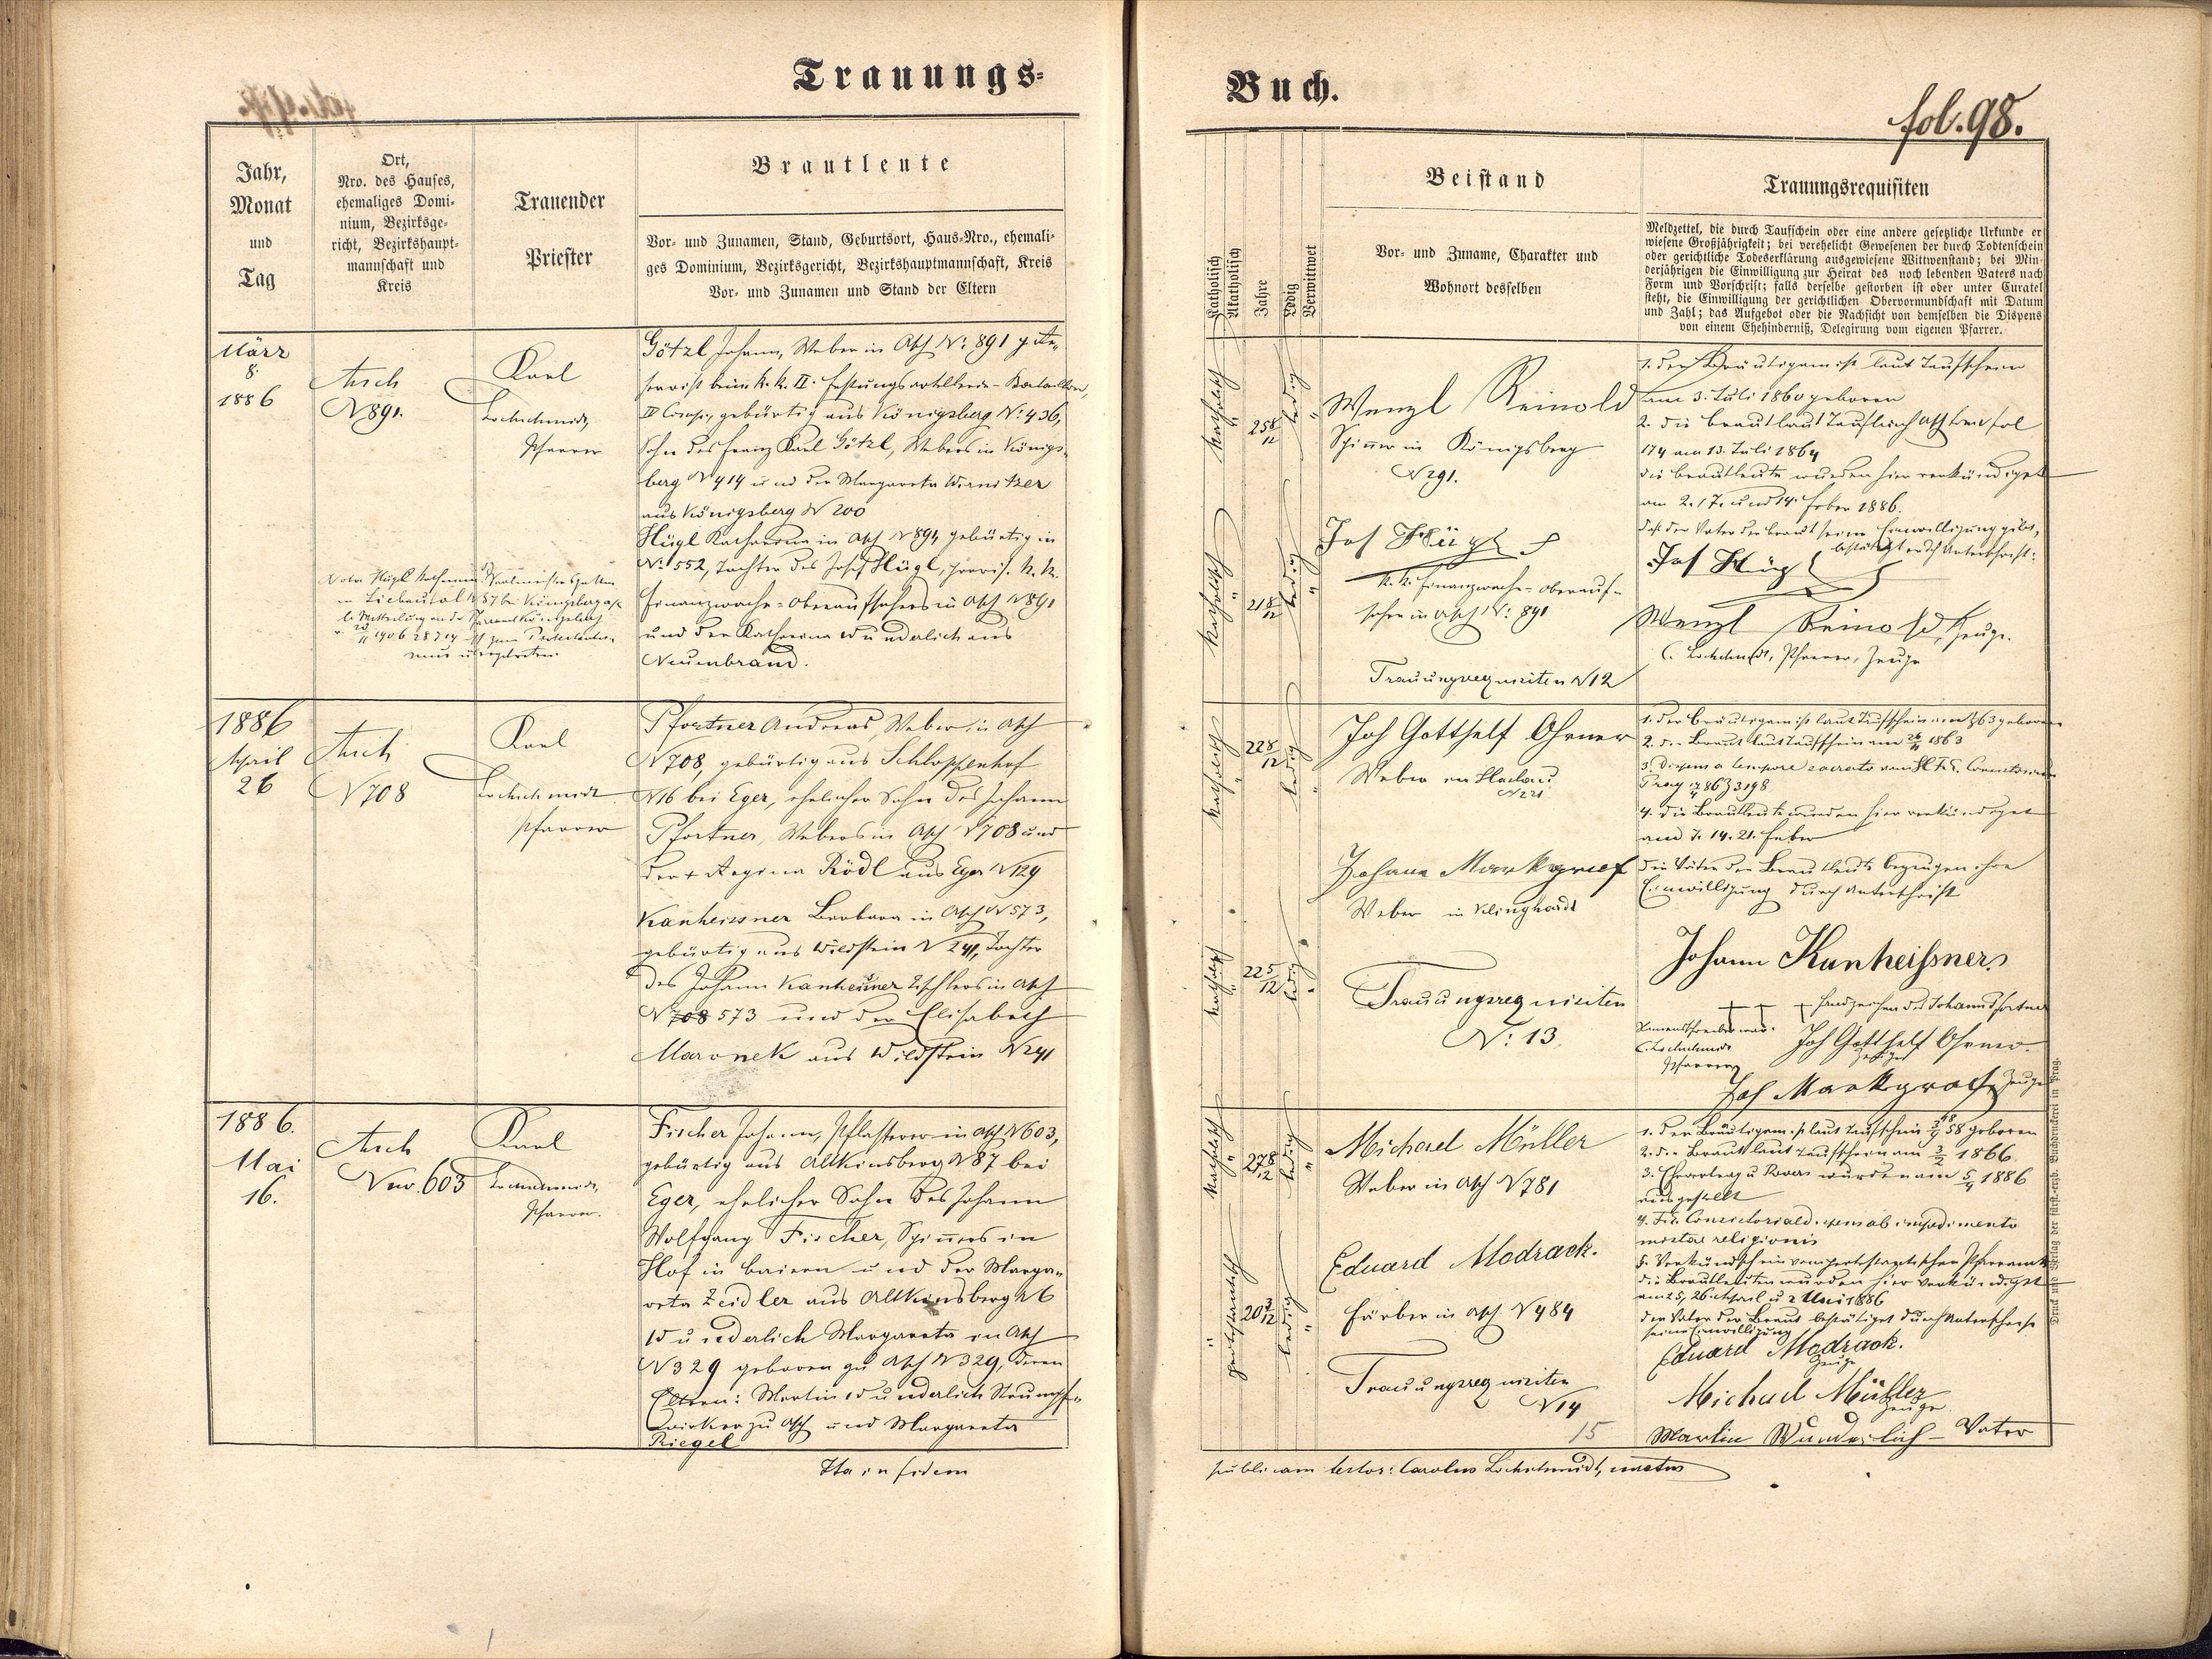 Trauungs-
Jahr,
Monat
und
Tag
Ort,
Nro. des Hauses,
ehemaliges Domi-
nium, Bezirksge-
richt, Bezirkshaupt-
mannschaft und
Kreis
Trauender
Priester
Brautleute
Vor- und Zunamen, Stand, Geburtsort, Haus-Nro., ehemali-
ges Dominium, Bezirksgericht, Bezirkshauptmannschaft, Kreis
Vor- und Zunamen und Stand der Eltern
März
8.
1886
Asch
N 891.
Karl
Lochschmidt,
Pfarrer
Götzl Johann, Weber in Asch N: 891
beim k. k. II. Festungsartillerie-Bataillon,
IV Comp., gebürtig aus Königsberg N: 436,
Sohn des Franz Karl Götzl, Webers in Königs-
berg N 414 und der Margareta Wirnitzer
aus Königsberg N 200
Hügl Katharina in Asch N 891, gebürtig in
N: 552, Tochter des Josef Hügl, provis. k. k.
Finanzwache-Oberaufsehers in Asch N 891
und der Katharina Wunderlich aus
Neuenbrand.
1886
April
26
Asch
N 708
Karl
Lochschmidt
Pfarrer
Pfortner Andreas, Weber in Asch
N 708, gebürtig aus Schloppenhof
N 16 bei Eger, ehelicher Sohn des Johann
Pfortner, Webers in Asch N 708 und
der + Regina Rödl aus Eger N 129
Kanheissner Barbara in Asch N 573,
gebürtig aus Wildstein N 241, Tochter
des Johann Kanheissner Tischlers in Asch
N 708 573 und der Elisabeth
Maronek aus Wildstein N 241
1886.
Mai
16.
Asch
Nro. 603
Karl
Lochschmidt,
Pfarrer.
Fischer Johann, Pflasterer in Asch N 603,
gebürtig aus Altkinsberg N 87 bei
Eger, ehelicher Sohn des Johann
Wolfgang Fischer, Spinners in
Hof in Baiern und der Marga-
reta Zeidler aus Altkinsberg N 6
Wunderlich Margareta in Asch
N 329 geboren zu Asch N 329, deren
Eltern: Martin Wunderlich Strumpf-
wirker zu Asch und Margareta
Riegel
Ita in fidem
Buch.
fol. 98.
Katholisch
Akatholisch
Jahre
Ledig
Verwittwet
Beistand
Vor- und Zuname, Charakter und
Wohnort desselben
Trauungsrequisiten
Meldzettel, die durch Taufschein oder eine andere gesetzliche Urkunde er
wiesene Großjährigkeit; bei verehelicht Gewesenen der durch Todtenschein
oder gerichtliche Todeserklärung ausgewiesene Wittwenstand; bei Min-
derjährigen die Einwilligung zur Heirat des noch lebenden Vaters nach
Form und Vorschrift; falls derselbe gestorben ist oder unter Curatel
steht, die Einwilligung der gerichtlichen Obervormundschaft mit Datum
und Zahl; das Aufgebot oder die Nachsicht von demselben die Dispens
von einem Ehehinderniß, Delegirung vom eigenen Pfarrer.
katholisch
25 8/12
ledig
Wenzl Reinold
Spinner in Königsberg
N 291.
katholisch
21 8/12
ledig
Jos Hügl
k. k. Finanzwache-Oberauf-
seher in Asch N: 891
Trauungsrequisiten N 12
1. der Bräutigam ist laut Taufschein
am 3. Juli 1860 geboren
2. die Braut laut Taufbuch Asch fol
174 am 13. Juli 1864
die Brautleute wurden hier verkündiget
am 2., 7. und 14. Feber 1886.
daß der Vater der Braut seine Einwilligung gibt,
bestätigt durch Unterschrift:
Jos Hügl
Wenzl Reinold, Zeuge.
C. Lochschmidt, Pfarrer, Zeuge
katholisch
22 8/12
ledig
Joh Gotthelf Ohrner
Weber in Haslau
N 221
katholisch
22 5/12
ledig
Johann Markgraf
Weber in Klinghardt
Trauungsrequisiten
N: 13.
1. der Bräutigam ist laut Taufschein 63 geboren
2. die Braut laut Taufschein am 1863
3. Dispens a tempore sacrato
Prag 86 Z 3198
4. die Brautleute wurden hier verkündiget
am 7. 14. 21. Feber
die Väter der Brautleute bezeugen ihre
Einwilligung durch Unterschrift
Johann Kanheißner
+ + + Handzeichen des Johann Pfortner
Namensschreiber war:
C. Lochschmidt
Pfarrer
Joh Gotthelf Ohrner
Zeuge
Joh Markgraf Zeuge
katholisch
27 8/12
ledig
Michael Müller
Weber in Asch N 781
protestantisch
20 3/12
ledig
Eduard Modrack.
Färber in Asch N 484
Trauungsrequisiten
N 14
15
1. der Bräutigam ist laut Taufschein 58 geboren
2. die Braut laut Taufschein am 3/2 1866
3. Ehevertrag u. Revers wurden am 5/4 1886
ausgestellt
4. F. e. Consistorialdispens ab impedimento
mixtae religionis
5. Verkündschein vom protestantischen Pfarramte
die Brautleute wurden hier verkündiget
am 25, 26 April u 2 Mai 1886
der Vater der Braut bestätiget durch Unterschrift
seine Einwilligung
Eduard Modrack.
Zeuge
Michael Müller
Zeuge
Martin Wunderlich - Vater
publicam testor: Carolus Lochschmidt, curatus
Druck und Verlag der fürst.-erzb. Buchdruckerei in Prag.